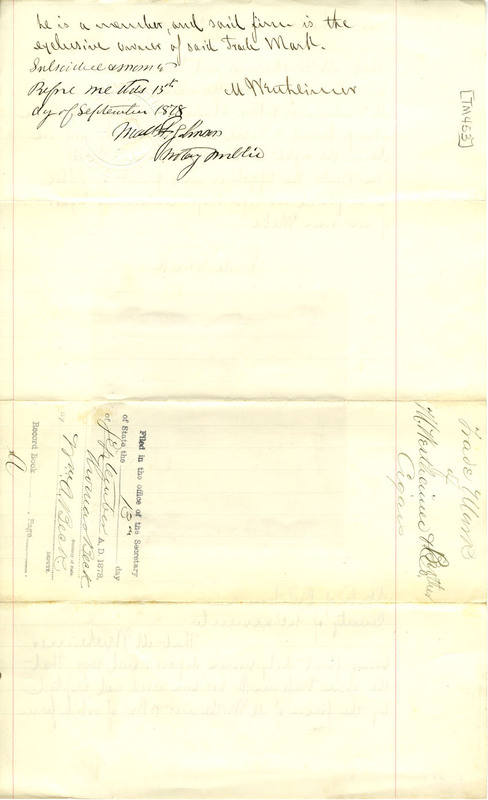 he is a member, and said firm is the
exclusive owner of said Trade Mark.
Subscribed & sworn to
Before me this 13th
day of September 1878
M Wertheimer
Notary Public
[TM453]
Trade Mark
of
M. Wertheimer & Brother
Cigars
Filed in the office of the Secretary
of State the 13th day
of September A. D. 1878,
Thomas Beck
Secretary of State
By Wm. C. Beck
DEPUTY.
Record Book Page